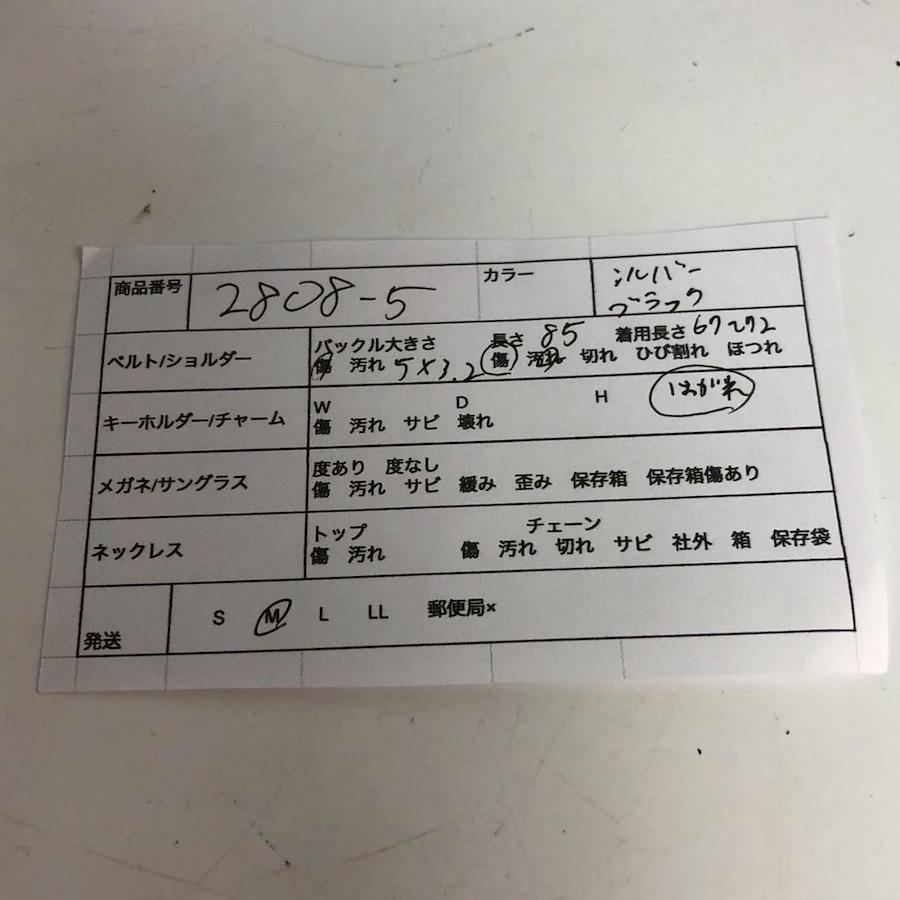 商品番号 2808-5 カラー シルバー
ブラック
ベルト/ショルダー バックル大きさ 長さ 85 着用長さ
傷 汚れ 5×3.2 傷 汚れ 切れ ひび割れ ほつれ
はがれ
キーホルダー/チャーム W D H
傷 汚れ サビ 壊れ
メガネ/サングラス 度あり 度なし
傷 汚れ サビ 緩み 歪み 保存箱 保存箱傷あり
ネックレス トップ チェーン
傷 汚れ 傷 汚れ 切れ サビ 社外 箱 保存袋
発送 S M L LL 郵便局×